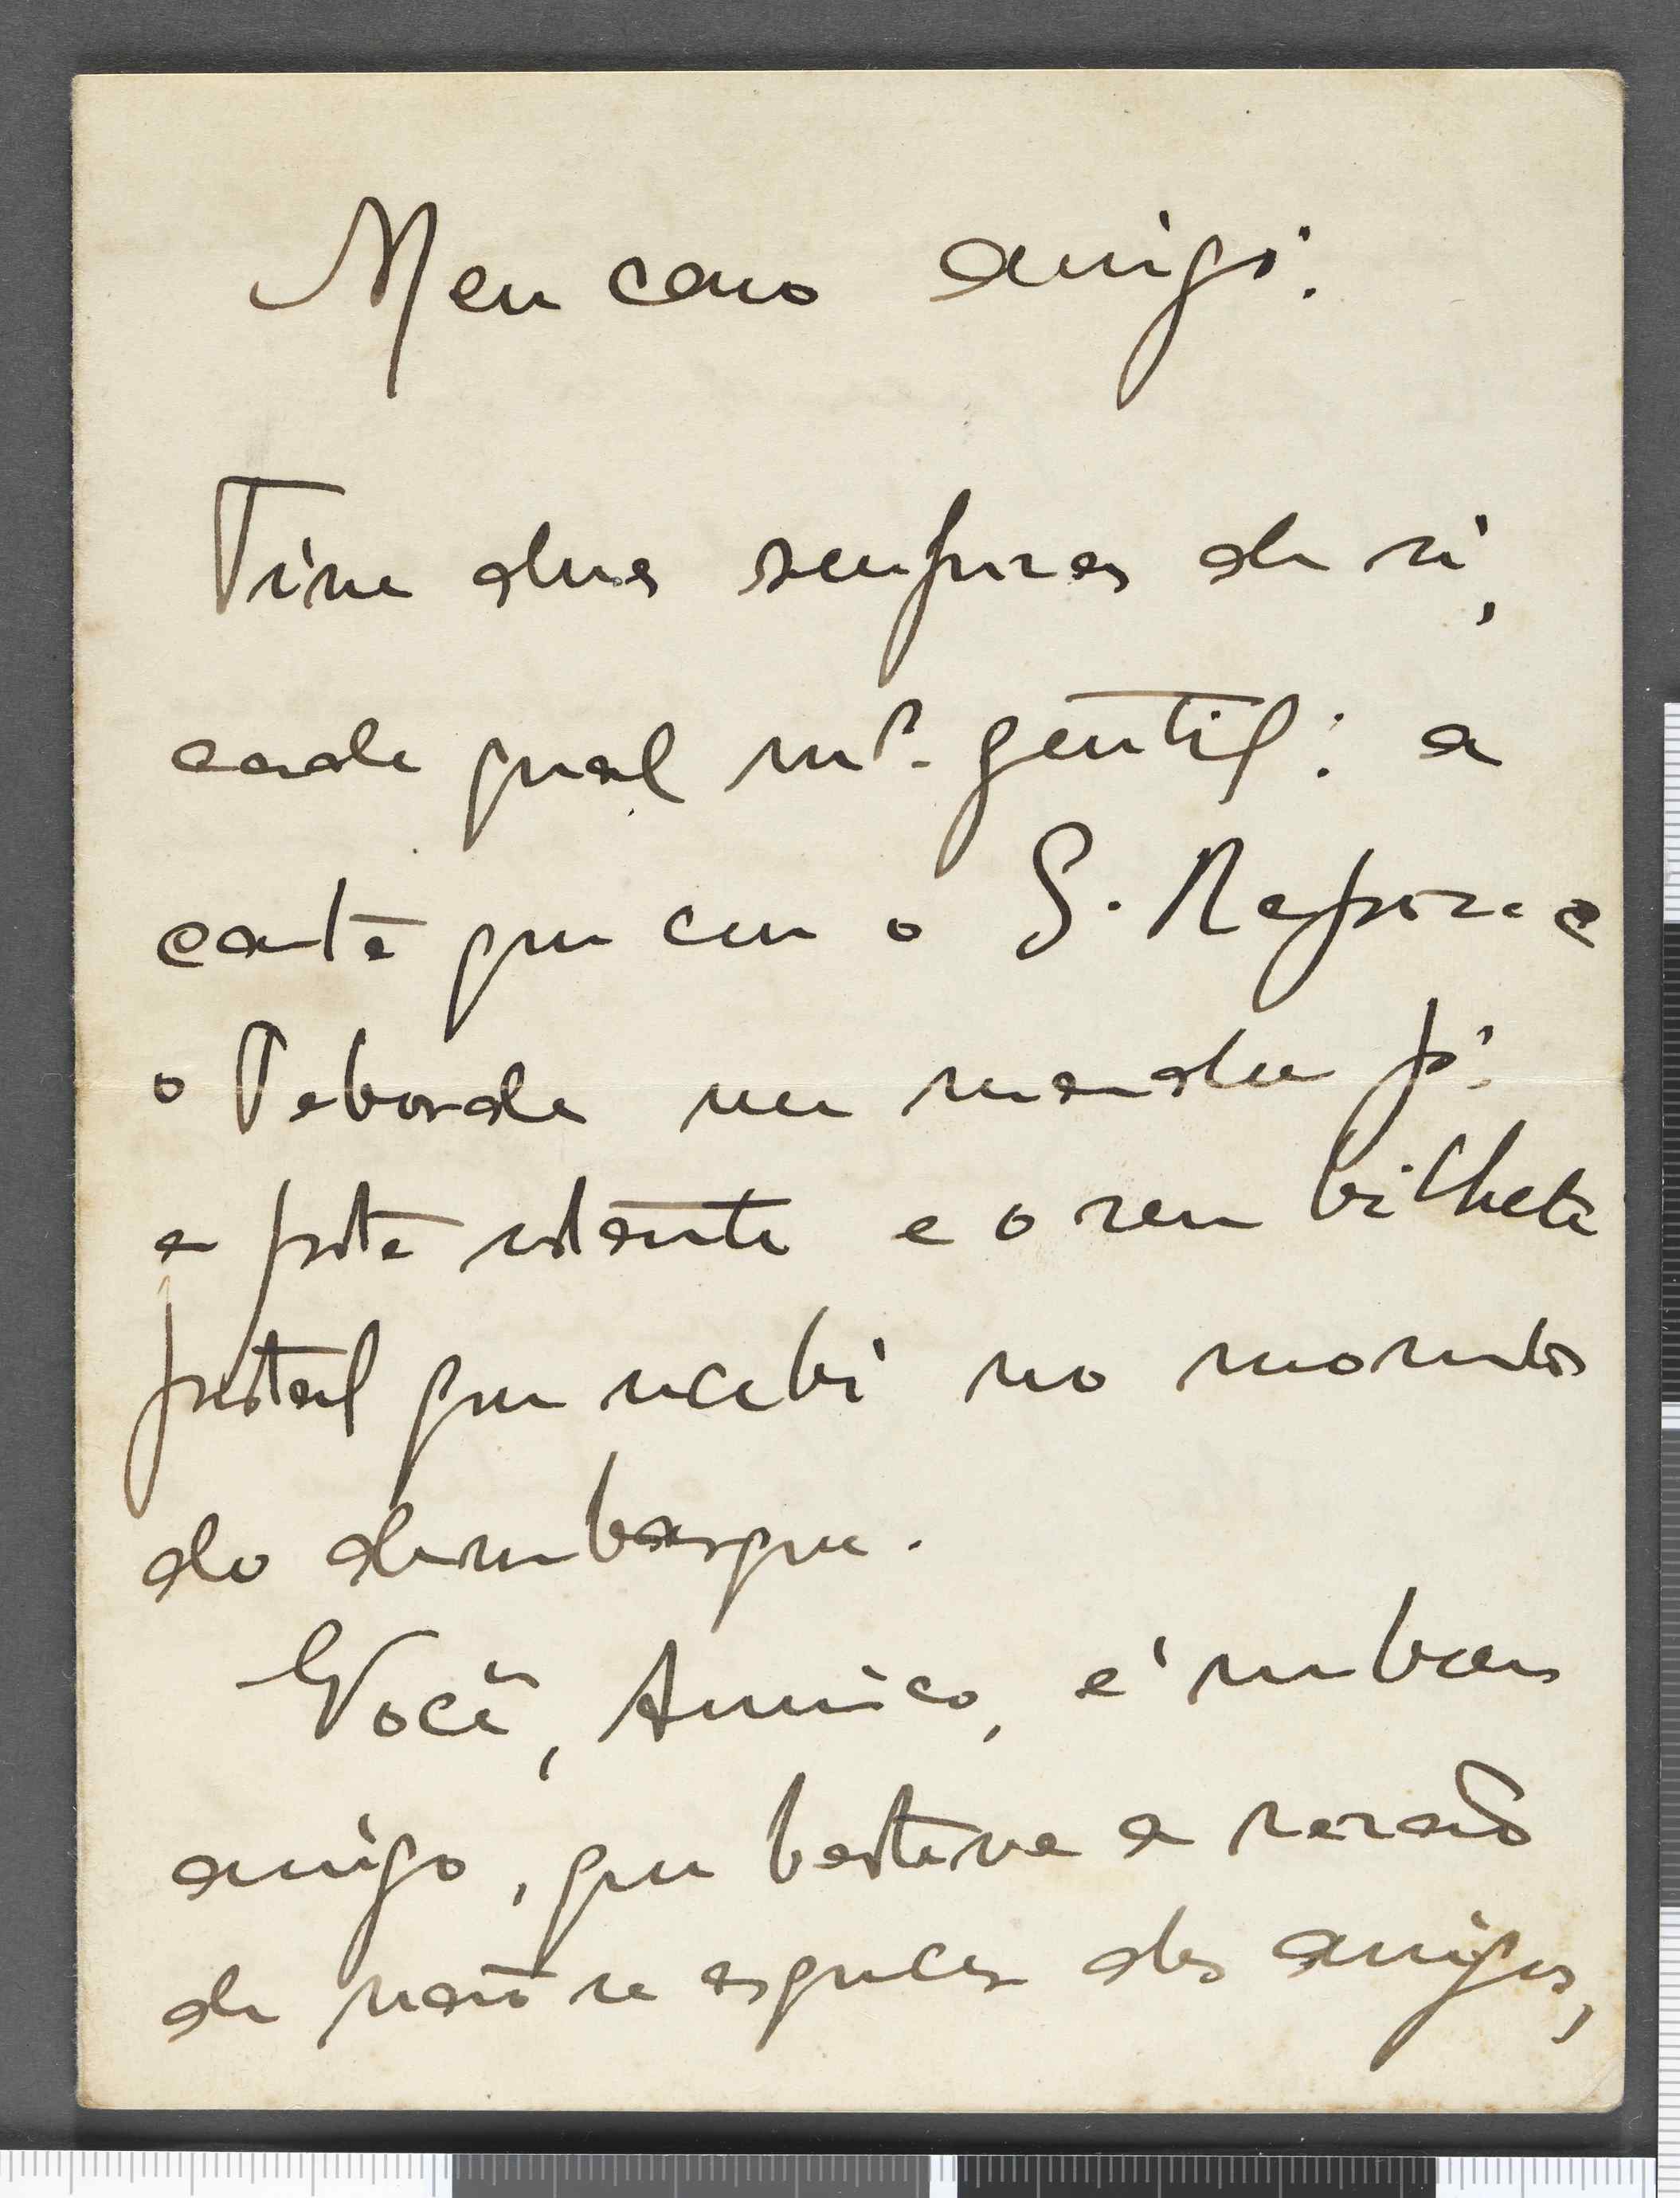 Meu caro amigo:
Tive duas surprezas de si,
cada qual mto. gentil: a
carta que com o S. Raposo e
o Taborda me mandou p.ª
a festa estante e o seu bilhete
postal que recebi no momento
do desembarque.
Você, Americo, é um bom
amigo, que bastava a razaõ
de naõ se esquecer dos amigos,